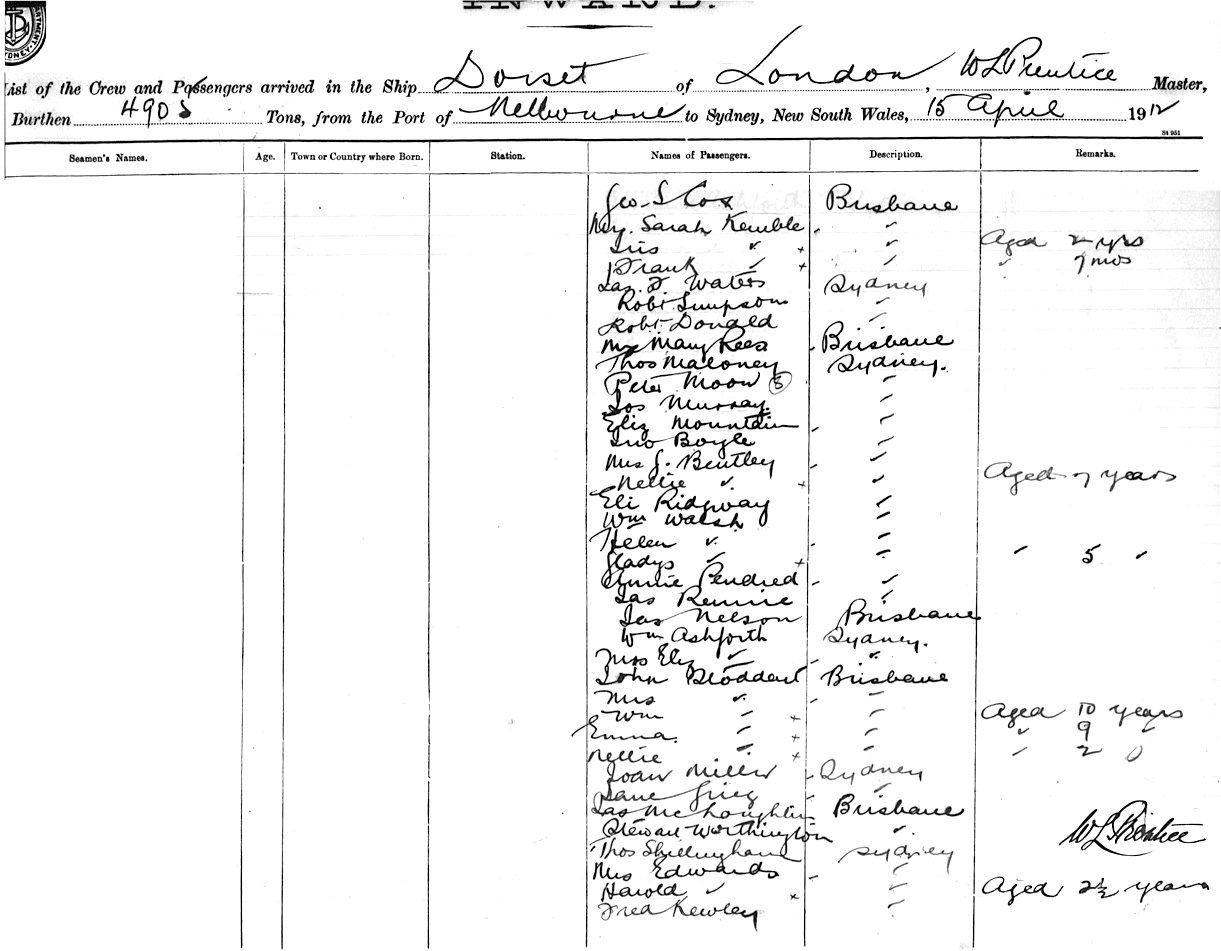 INWARD.
List of the Crew and Passengers arrived in the Ship Dorset of London, W L Prentice Master,
Burthen 4905 Tons, from the Port of Melbourne to Sydney, New South Wales, 15 April 1912
St 951
Seamen's Names. Age. Town or Country where Born. Station. Names of Passengers. Description. Remarks.
Geo. S Cox Brisbane
Sarah Kemble "
Iris " + " Aged 2 yrs
Frank " + " " 7 mos
Jas. F Waters Sydney
Robt Simpson "
Robt Donald "
Mrs Mary Rees Brisbane
Thos Maloney Sydney.
Peter Moon (S) "
Jos Murray "
Eliz Mountain "
Jno Boyle "
Mrs J. Bentley "
Nellie " + " Aged 7 years
Eli Ridgway "
Wm Walsh "
Helen " "
Gladys " + " " 5 "
Annie Pendred "
Jas Rennie "
Jas Nelson Brisbane
Wm Ashforth Sydney.
Mrs Eliz " "
John Stoddart Brisbane
Mrs " "
Wm " + " Aged 10 years
Emma. " + " " 9 "
Nellie " + " " 2
Joan Miller Sydney
Jane Grieg "
Jas McLoughlin Brisbane
Stewart Worthington "
W L Prentice
Thos Skillingham Sydney
Mrs Edwards "
Harold " + " Aged 2½ years
Fred Kewley "